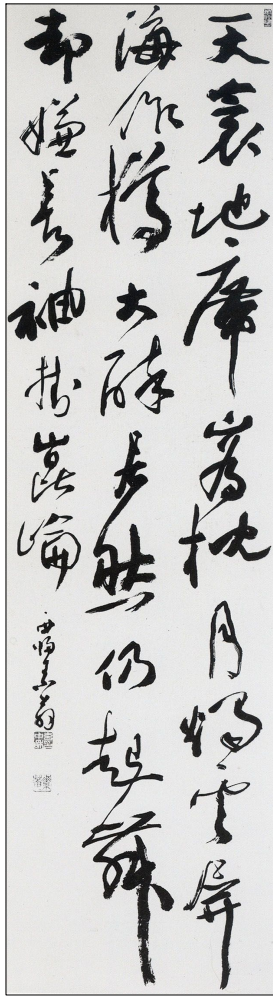 天衾地席山爲枕月燭雲屛
海作樽大醉居然仍起舞
却嫌長袖掛崑崙